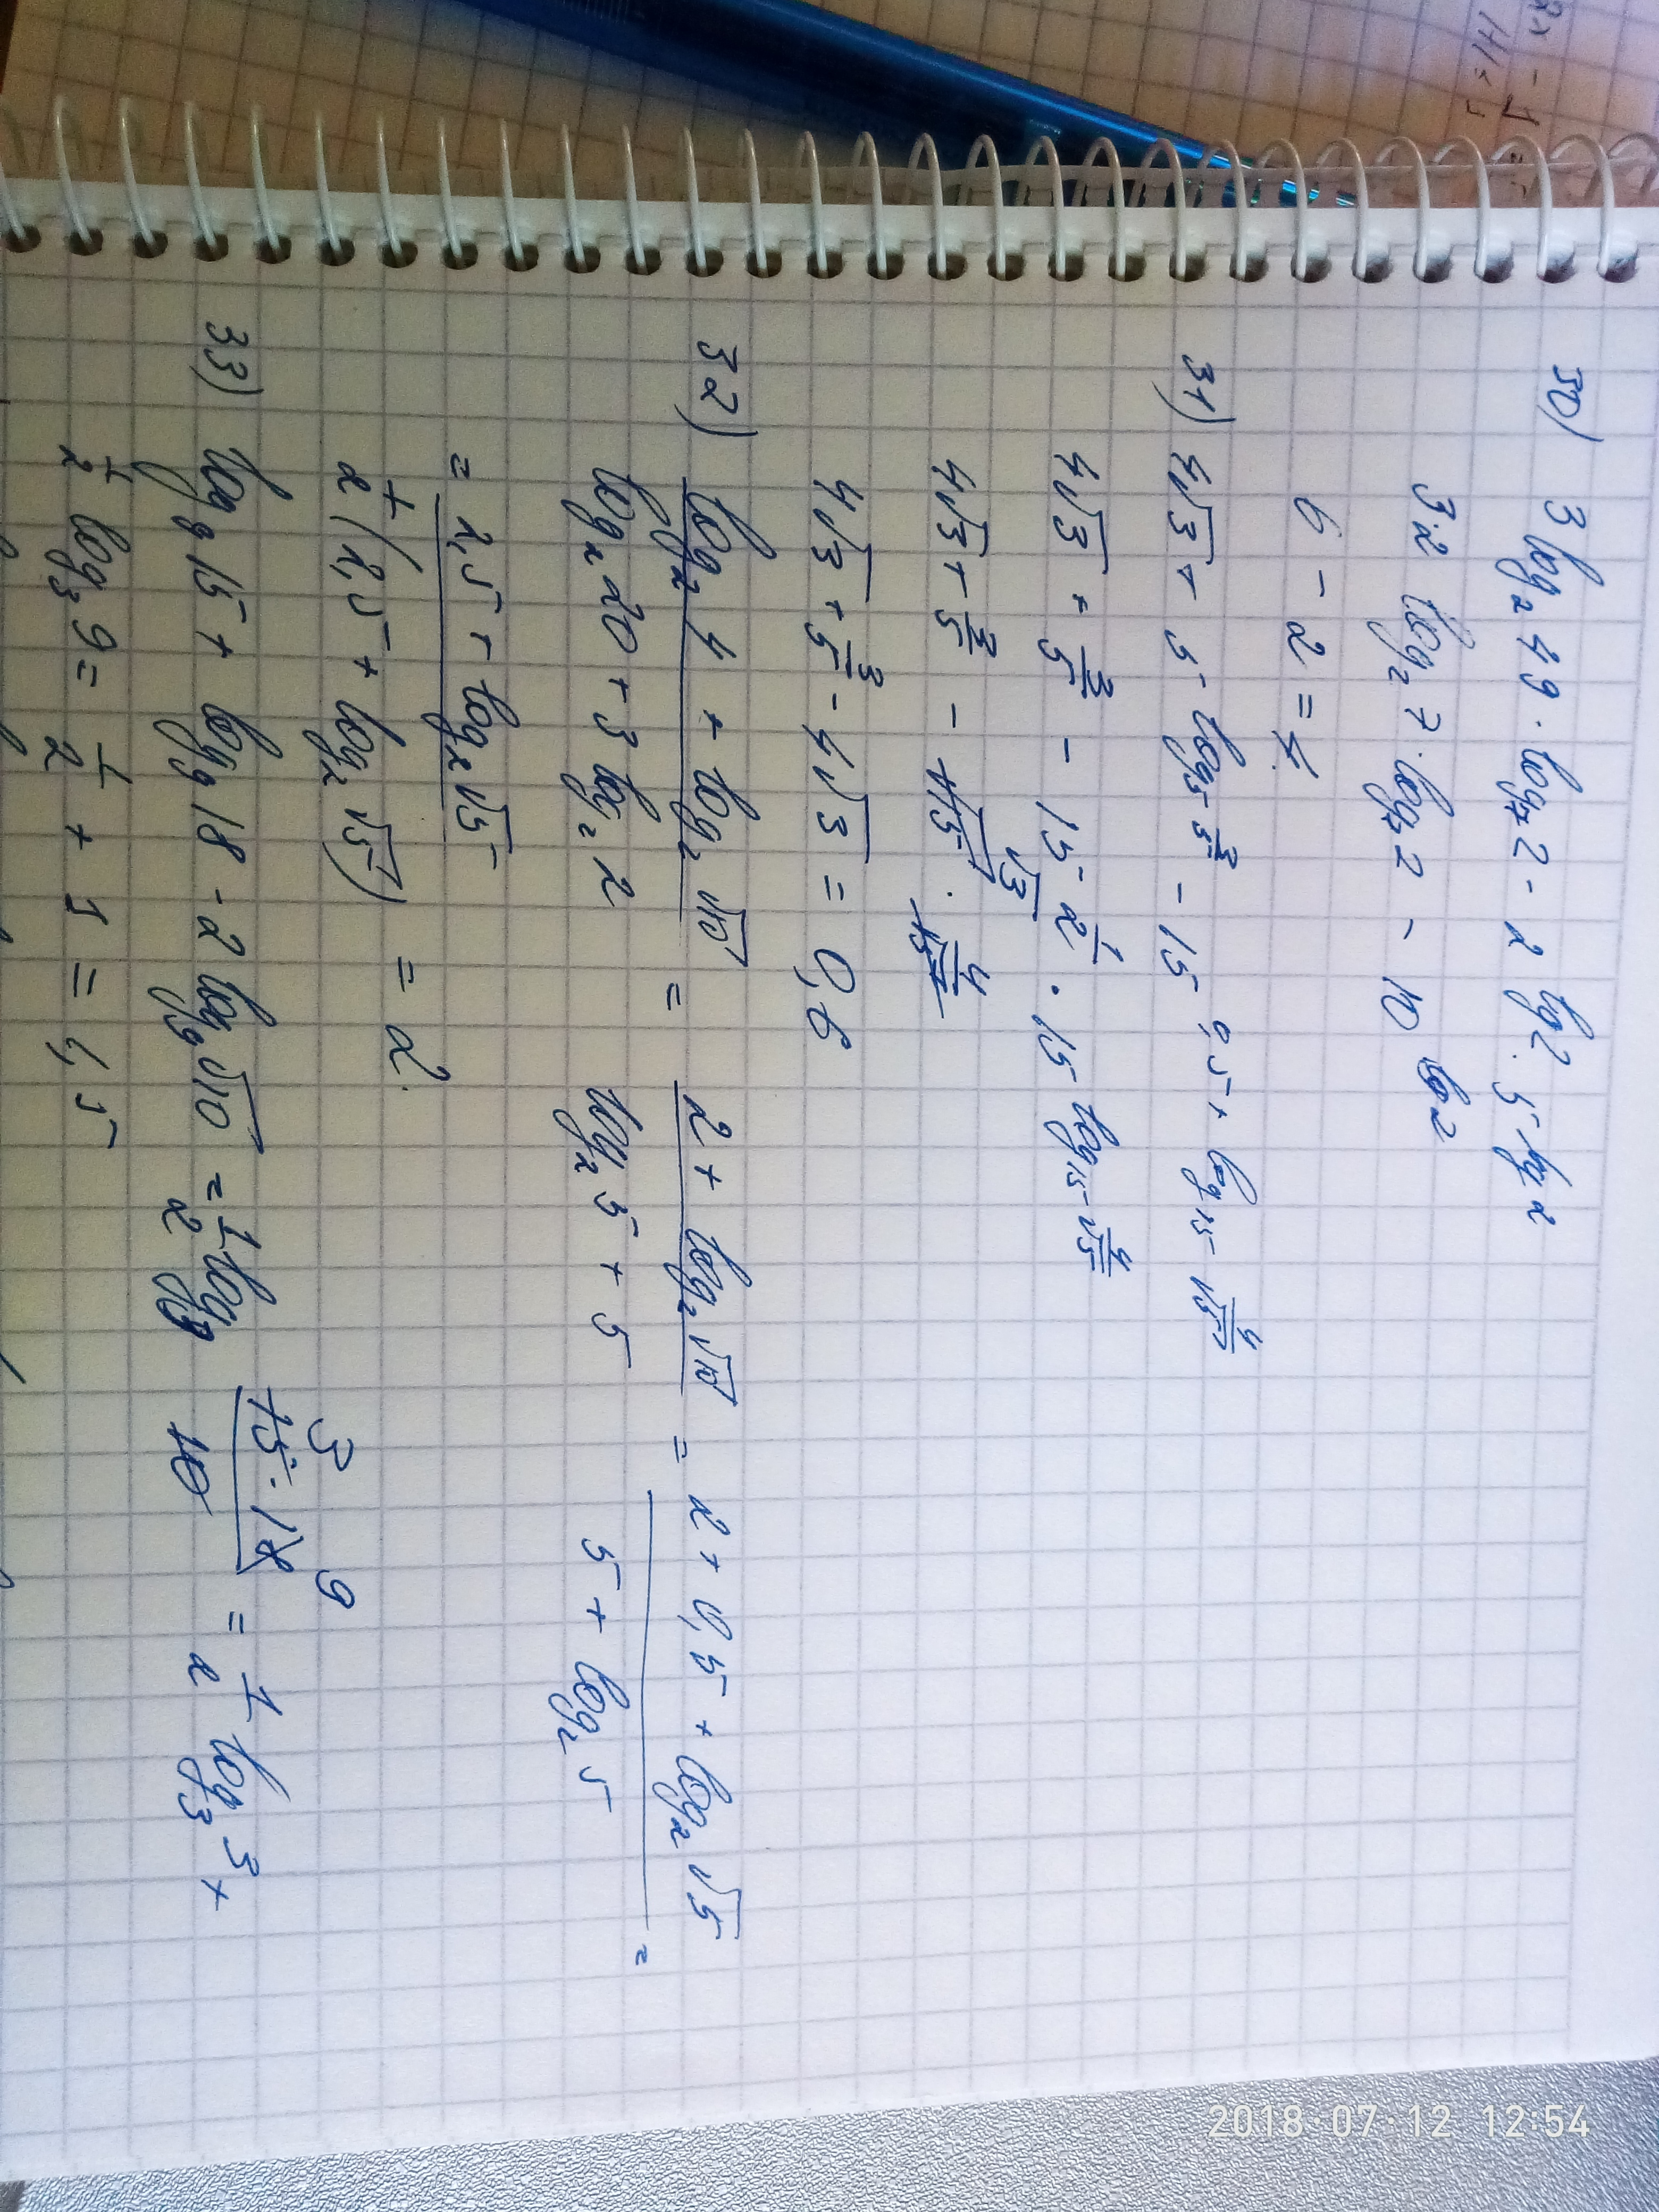 30) 3 log₂ 49 · log₇ 2 - 2 lg 2 · 5 lg 2
3·2 log₂ 7 · log₇ 2 - 10 lg 2
6 - 2 = 4
31) 4√3 + 5 log₅ 3/5 - 15 0,5 + log₁₅ 4/√5
4√3 + 3/5 - 15 1/2 · 15 log₁₅ 4/√5
4√3 + 3/5 - √15 √3 · 4/√5
4√3 + 3/5 - 4√3 = 0,6
32) (log₂ 4 + log₂ √10) / (log₂ 20 + 3 log₂ 2) = (2 + log₂ √10) / (log₂ 5 + 5) = (2 + 0,5 + log₂ √5) / (5 + log₂ 5) =
= (2,5 + log₂ √5) / (1/2 (2,5 + log₂ √5)) = 2.
33) log₉ 15 + log₉ 18 - 2 log₉ √10 = 1/2 log₉ (15 · 18) / 10 3 9 = 1/2 log₃ 3 +
1/2 log₃ 9 = 1/2 + 1 = 1,5
2018·07·12 12:54